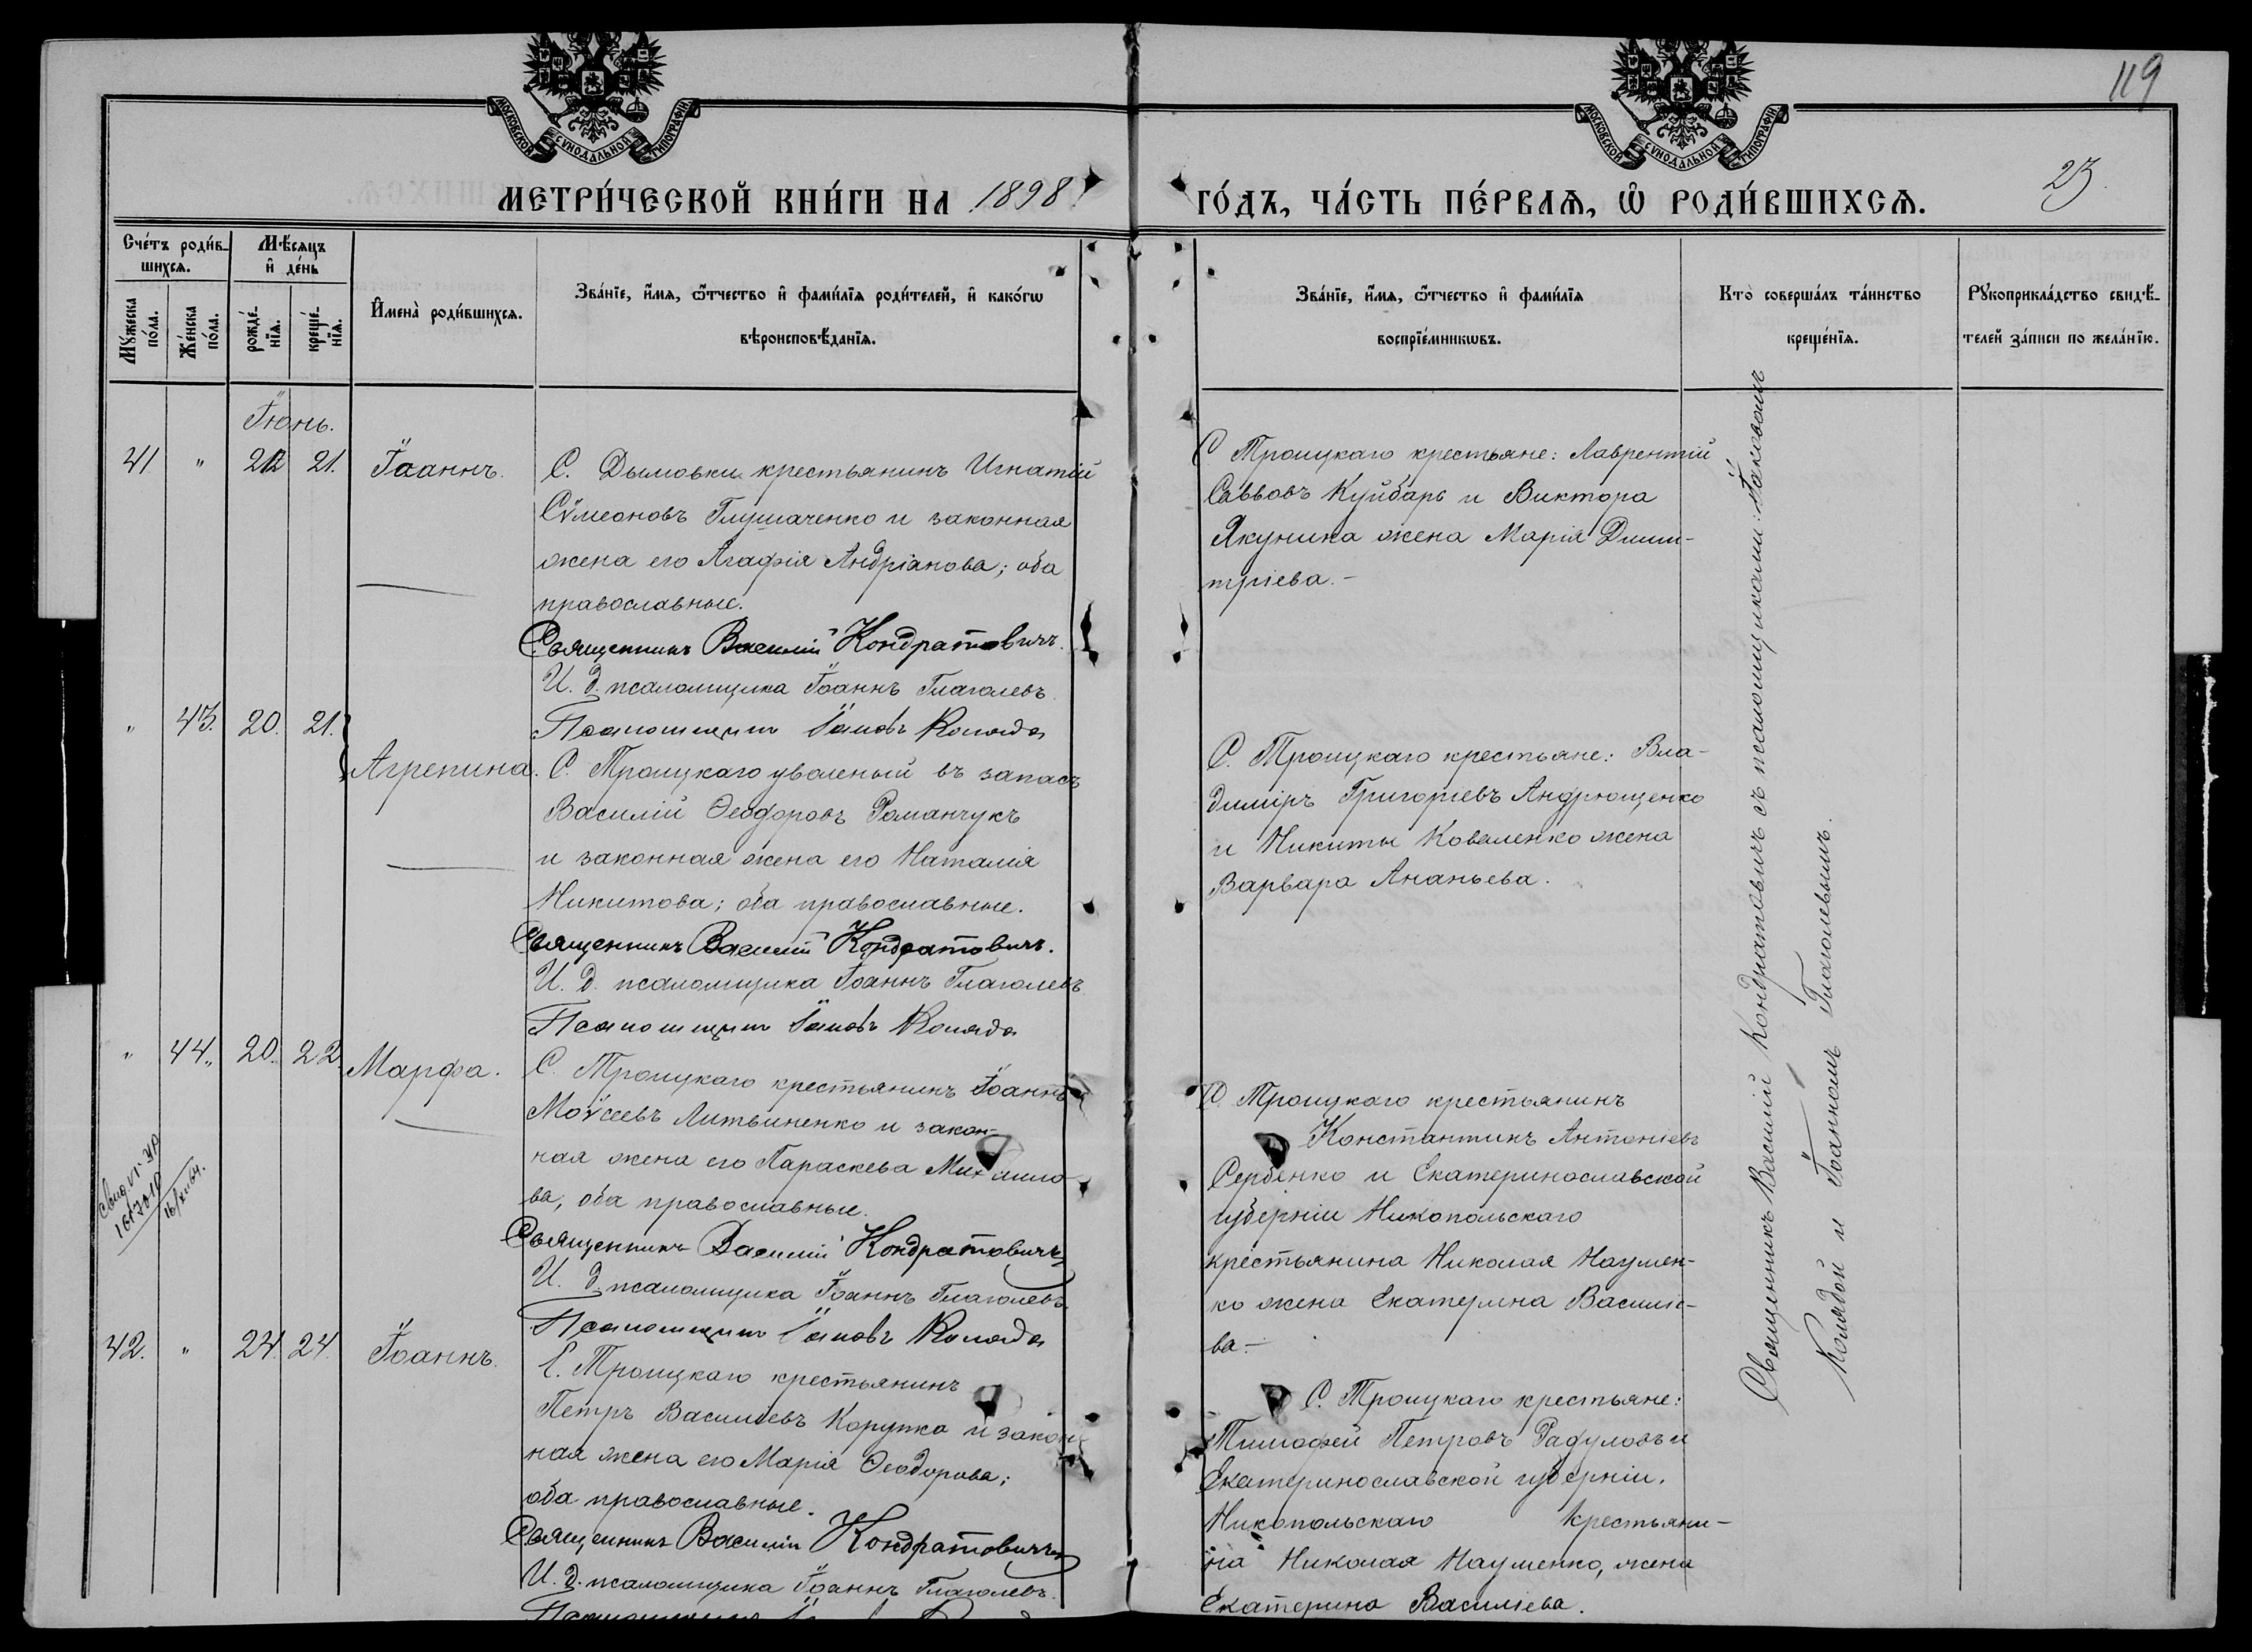 119
23.
МОСКОВСКОЙ СѴНОДАЛЬНОЙ ТИПОГРАФІИ
МОСКОВСКОЙ СѴНОДАЛЬНОЙ ТИПОГРАФІИ
МЕТРИ́ЧЕСКОЙ КНИ́ГИ НА 1898 ГО́ДЪ, ЧА́СТЬ ПЕ́РВАѦ, Ѡ҆ РОДИ́ВШИХСѦ.
Сче́тъ роди́в-
шихсѧ.
Мꙋ́жеска по́ла.
Же́нска по́ла.
Мѣ́сѧцъ
и҆ де́нь
рожде́-
нїѧ.
креще́-
нїѧ.
И҆мена̀ роди́вшихсѧ.
Зва́нїе, и҆́мѧ, ѻ҆́тчество и҆ фами́лїѧ роди́телей, и҆ како́гѡ
вѣроисповѣ́данїѧ.
Зва́нїе, и҆́мѧ, ѻ҆́тчество и҆ фами́лїѧ
воспрїе́мникѡвъ.
Кто̀ соверша́лъ та́инство
креще́нїѧ.
Рꙋкоприкла́дство свидѣ́-
телей за́писи по жела́нїю.
Іюнь.
41 " 21.
Іоаннъ.
С. Дымовки крестьянинъ Игнатій
Сѵмеоновъ Глушаченко и законная
жена его Агафія Андріанова; оба
православные.
Священникъ Василій Кондратовичъ.
И. д. псаломщика Іоаннъ Глаголевъ
Псаломщикъ Іаковъ Коляда
С. Троицкаго крестьяне: Лаврентій
Саввовъ Куйбарь и Виктора
Якунина жена Марія Дими-
тріева.-
" 43. 20. 21.
Агрепина.
С. Троицкаго уволеный въ запасъ
Василій Ѳеодоровъ Романчукъ
и законная жена его Наталія
Никитова; оба православные.
Священникъ Василій Кондратовичъ.
И. д. псаломщика Іоаннъ Глаголевъ
Псаломщикъ Іаковъ Коляда
С. Троицкаго крестьяне: Вла-
диміръ Григоріевъ Андрющенко
и Никиты Коваленко жена
Варвара Ананьева.
" 44. 20. 22.
Марфа.
С. Троицкаго крестьянинъ Іоаннъ
Моѵсеевъ Литвиненко и закон-
ная жена его Параскева Михаило-
ва, оба православные.
Священникъ Василій Кондратовичъ
И. д. псаломщика Іоаннъ Глаголевъ
Псаломщикъ Іаковъ Коляда
С. Троицкаго крестьянинъ
Константинъ Антоніевъ
Сербенко и Екатеринославской
губерніи Никопольскаго
крестьянина Николая Наумен-
ко жена Екатерина Василіе-
ва.-
16/XII 64.
42. " 24. 24.
Іоаннъ.
С. Троицкаго крестьянинъ
Петръ Василіевъ Корупка и закон-
ная жена его Марія Ѳеодорова;
оба православные.
Священникъ Василій Кондратовичъ
И. д. псаломщика Іоаннъ Глаголевъ.
С. Троицкаго крестьяне:
Тимофей Петровъ Радуловъ и
Екатеринославской губерніи,
Никопольскаго крестьяни-
на Николая Науменко, жена
Екатерина Василіева.
Священникъ Василій Кондратовичъ съ псаломщиками: Іаковомъ
Колядой и Іоанномъ Глаголевымъ.